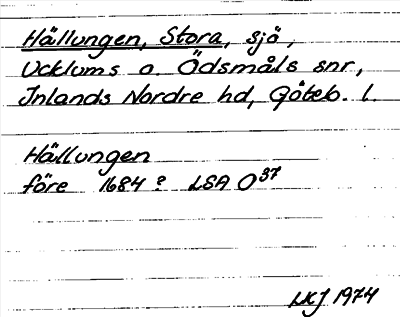 Hällungen, Stora, sjö,
Ucklums o. Ödsmåls snr,
Inlands Nordre hd, Göteb. l.
Hällungen
före 1684? LSA O37
LKJ 1974